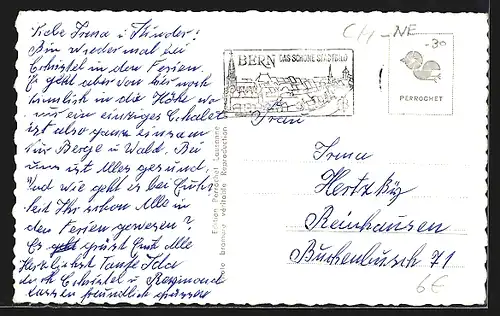 Liebe Irma u. Kinder!
Bin wieder mal bei
Christel in den Ferien.
Es geht aber von hier noch
ziemlich in die Höhe wo
nur ein einziges Chalet
ist also ganz einsam
nur Berge u. Wald. Bei
uns ist Alles gesund,
Und wie geht es bei Euch
seit Ihr schon Alle in
den Ferien gewesen?
Es grüsst Euch Alle
Herzlichst Tante Ida
auch Christel u. Raymond
lassen freundlich grüssen
Edition Perrochet Lausanne
Photo bromure véritable Reproduction
CH-NE
BERN DAS SCHÖNE STADTBILD
-30
PERROCHET
Frau
Irma
Hertz
Reinhausen
Buchenbusch 71
6€